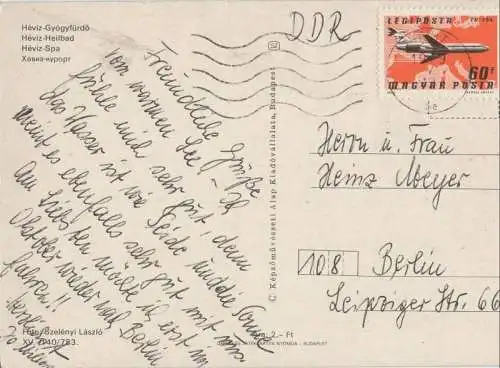 Hévíz-Gyógyfürdő
Hévíz-Heilbad
Hévíz-Spa
Хевиз-курорт
DDR
LÉGIPOSTA
60f
MAGYAR POSTA
Freundliche Grüße
vom warmen See – Ich
fühle mich sehr gut, denn
das Wasser ist wie Seide und die Sonne
meint es ebenfalls sehr gut mit uns.
Am liebsten möchte ich erst im
Oktober wieder nach Berlin
fahren!!
Herrn u. Frau
Heinz Meyer
108 Berlin
Leipziger Str. 66
© Képzőművészeti Alap Kiadóvállalata, Budapest
Foto: Szelényi László
XV. 7040/783.
Ára: 2.– Ft
BUDAPEST